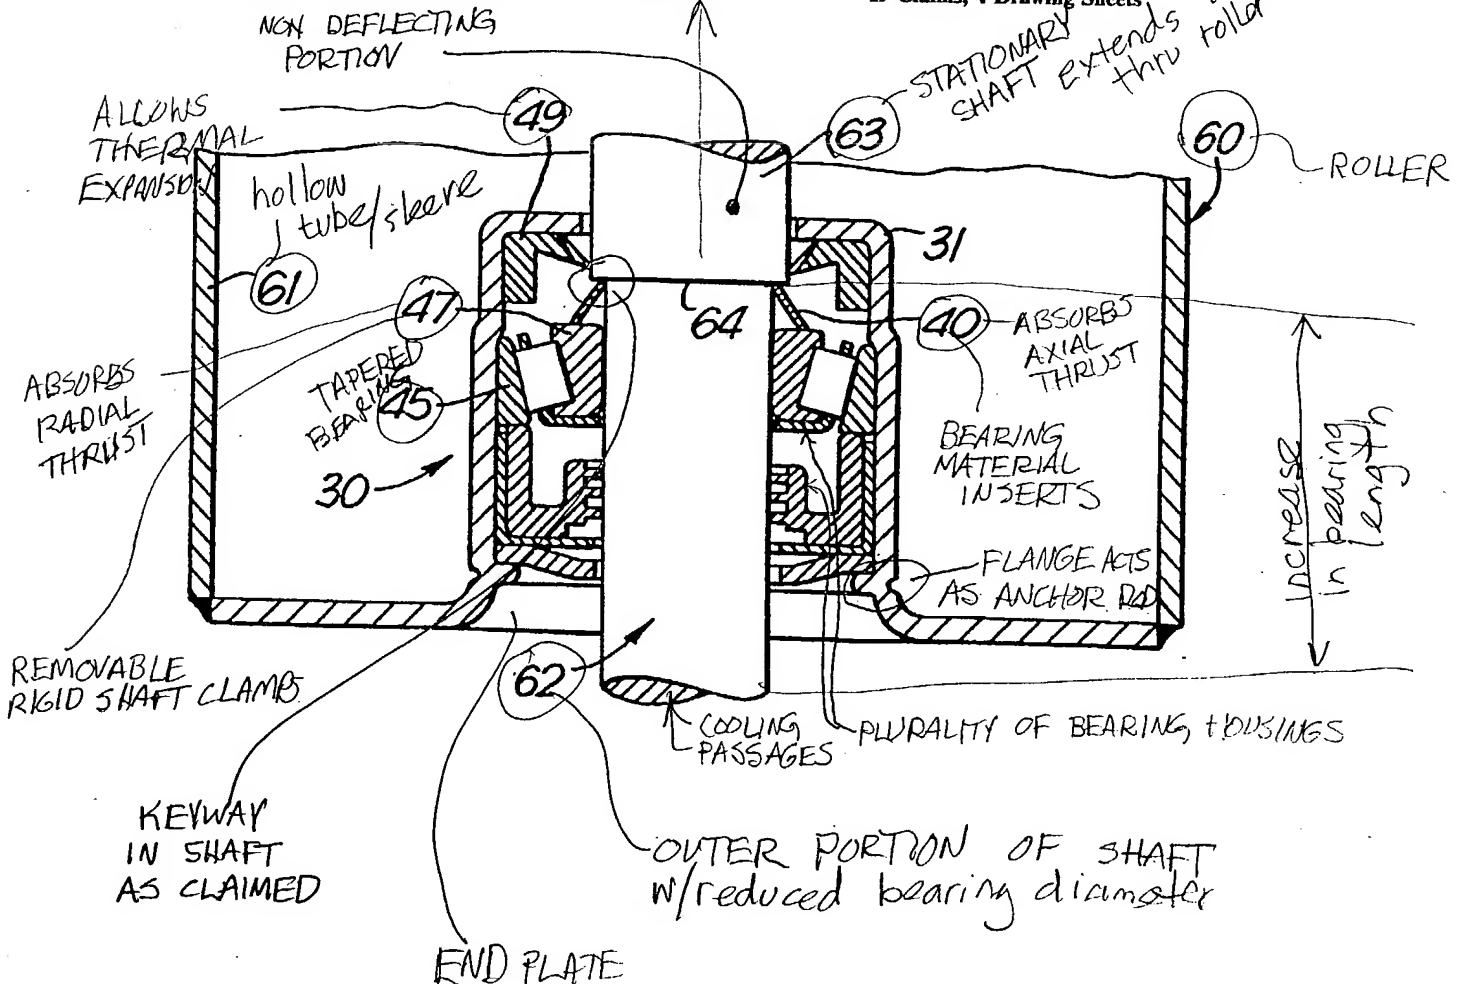 Claims, 4 Drawing Sheets
NON DEFLECTING
PORTION
STATIONARY
SHAFT extends
thru roller
ALLOWS
THERMAL
EXPANSION
49
63
60
ROLLER
hollow
tube/sleeve
61
31
47
64
40
ABSORBS
AXIAL
THRUST
ABSORBS
RADIAL
THRUST
TAPERED
BEARING
45
30
BEARING
MATERIAL
INSERTS
INCREASE
in bearing
length
FLANGE ACTS
AS ANCHOR ROD
REMOVABLE
RIGID SHAFT CLAMBS
62
COOLING
PASSAGES
PLURALITY OF BEARING, HOUSINGS
KEYWAY
IN SHAFT
AS CLAIMED
OUTER PORTION OF SHAFT
w/reduced bearing diameter
END PLATE